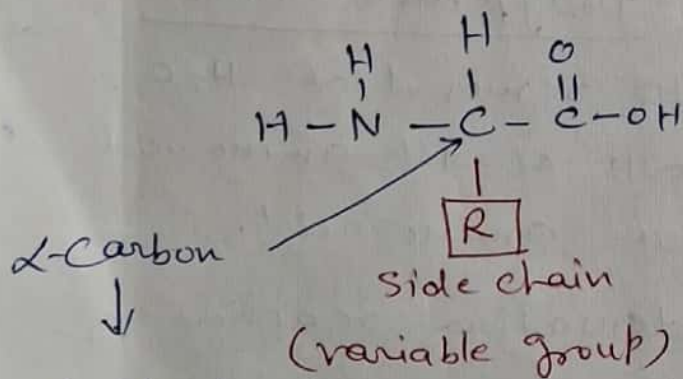 H H O
H - N - C - C - OH
R
α-Carbon
side chain
(variable group)